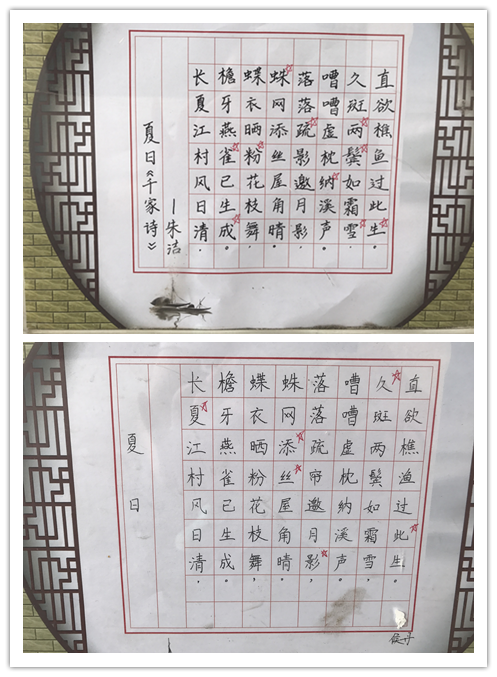 夏日《千家诗》
—朱洁
长夏江村风日清，
檐牙燕雀已生成。
蝶衣晒粉花枝舞，
蛛网添丝屋角晴。
落落疏影邀月影，
嘈嘈虚枕纳溪声。
久斑两鬓如霜雪，
直欲樵鱼过此生。
夏日
长夏江村风日清，
檐牙燕雀已生成。
蝶衣晒粉花枝舞，
蛛网添丝屋角晴。
落落疏帘邀月影，
嘈嘈虚枕纳溪声。
久斑两鬓如霜雪，
直欲樵渔过此生。
侯丹